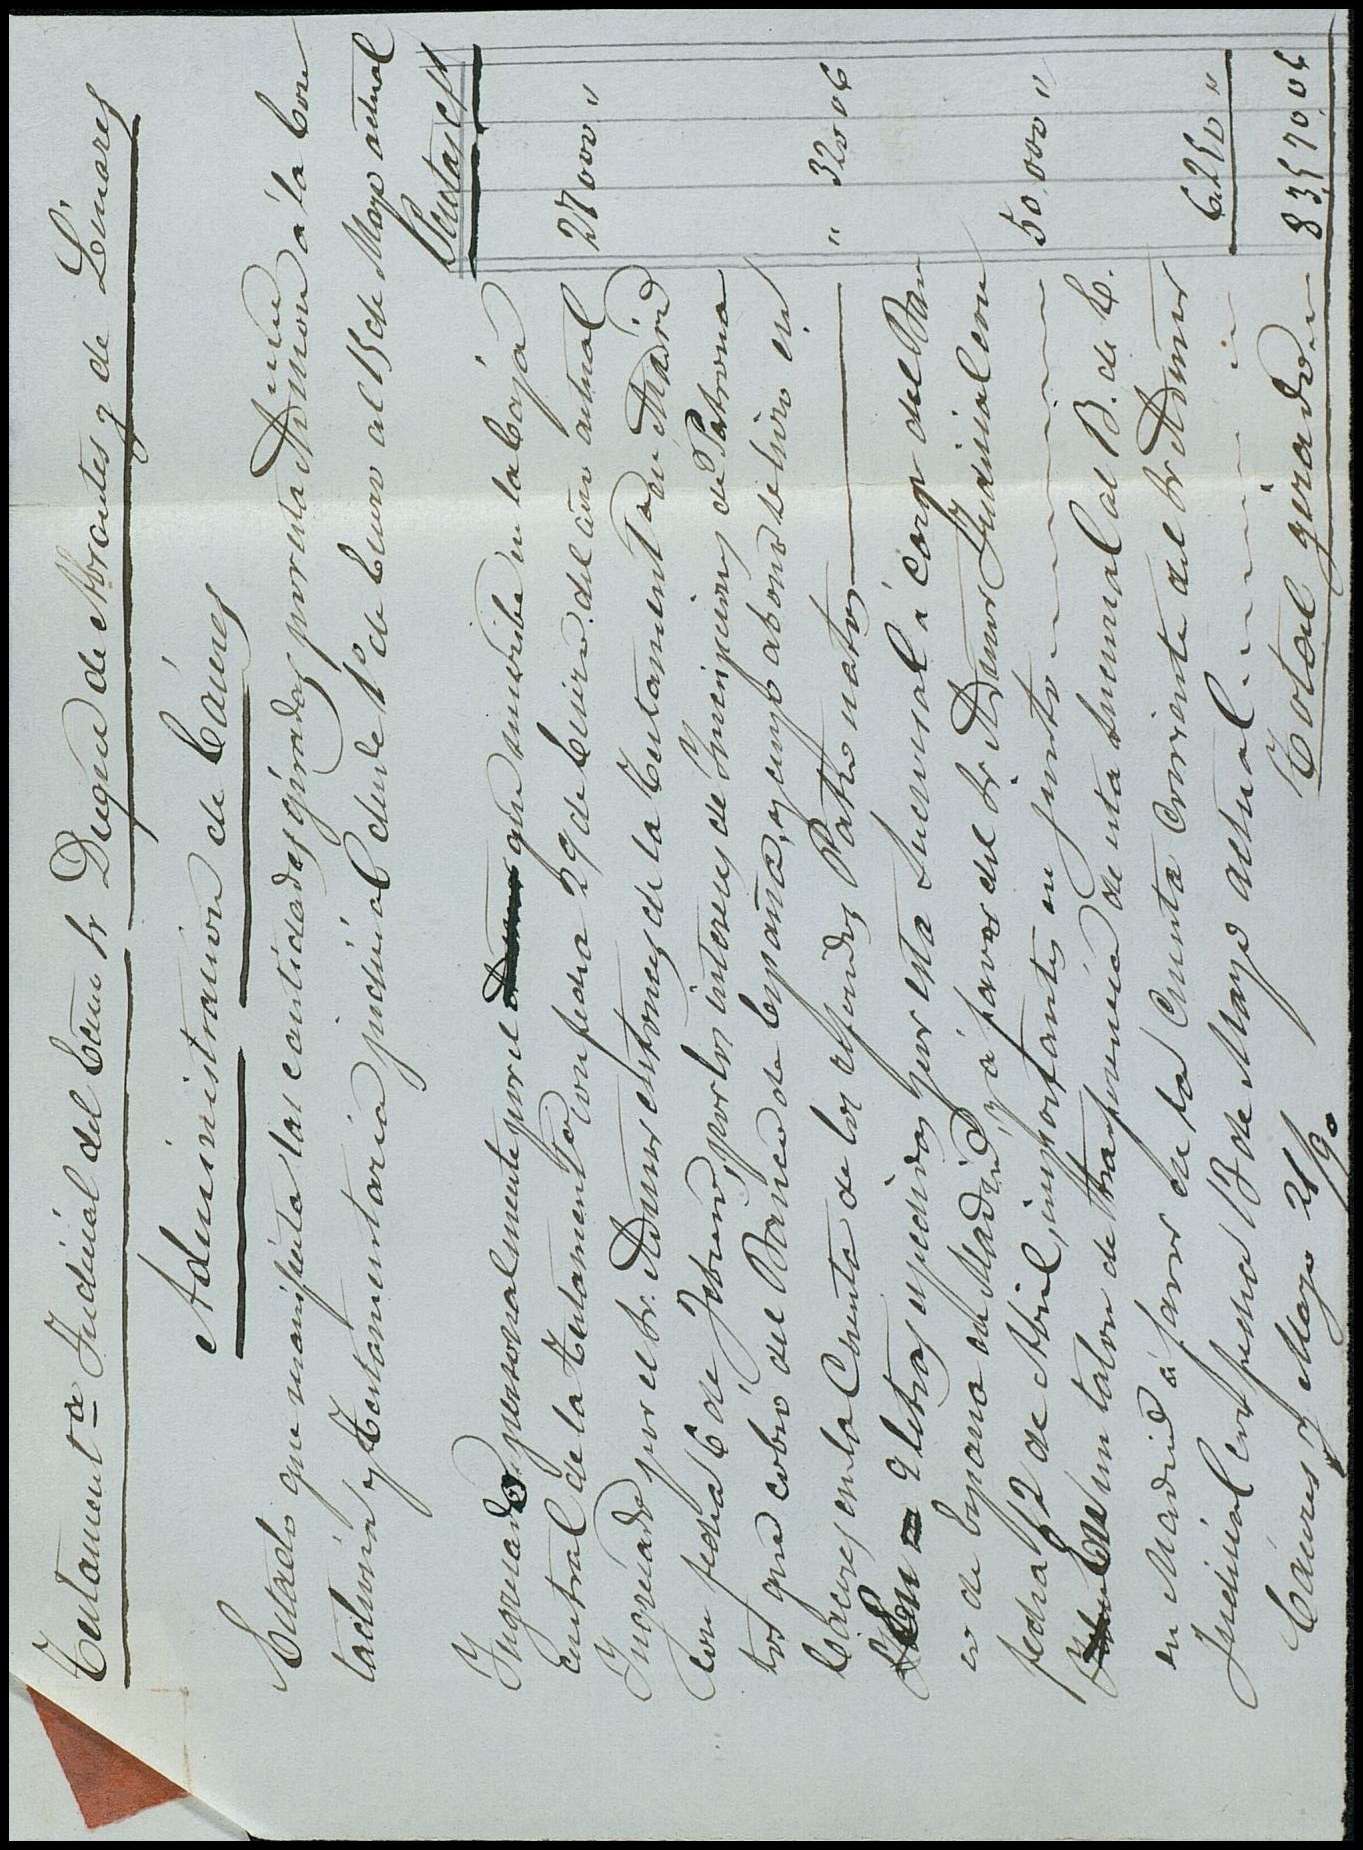 Testament.ª Judicial del Excmo Sr Duque de Abrantes y de Linares
Administracion de Cáceres
Estado que manifiesta las cantidades giradas por esta Admon á la Con
taduria y Testamentaria judicial desde 1º de Enero al 15 de Mayo actual
Pesetas Cs
Ingresado personalmente por el que suscribe en la Caja
Central de la Testament.ª con fecha 29 de Enero del año actual 27000 "
Ingresado por el Sr. Admor entonces de la Testament.ª en Madrid
con fecha 6 de Febrero, por los intereses de Inscripciones de Patrona
tos que cobro del Banco de España, y cuyo abono se hizo en
Cáceres en la Cuenta de los referidos Patronatos " 320 06
En 2 letras expedidas por esta Sucursal á cargo del Ban
co de España de Madrid y á favor del Sr. Admor Judicial con
fecha 12 de Abril, importantes en junto 50.000 "
En un talon de trasferencia de esta Sucursal al B. de E.
en Madrid á favor de la Cuenta Corriente del Sr Admor
Judicial con fecha 13 de Mayo actual 6.250 "
Total girado 83,570,06
Cáceres y Mayo 21/90